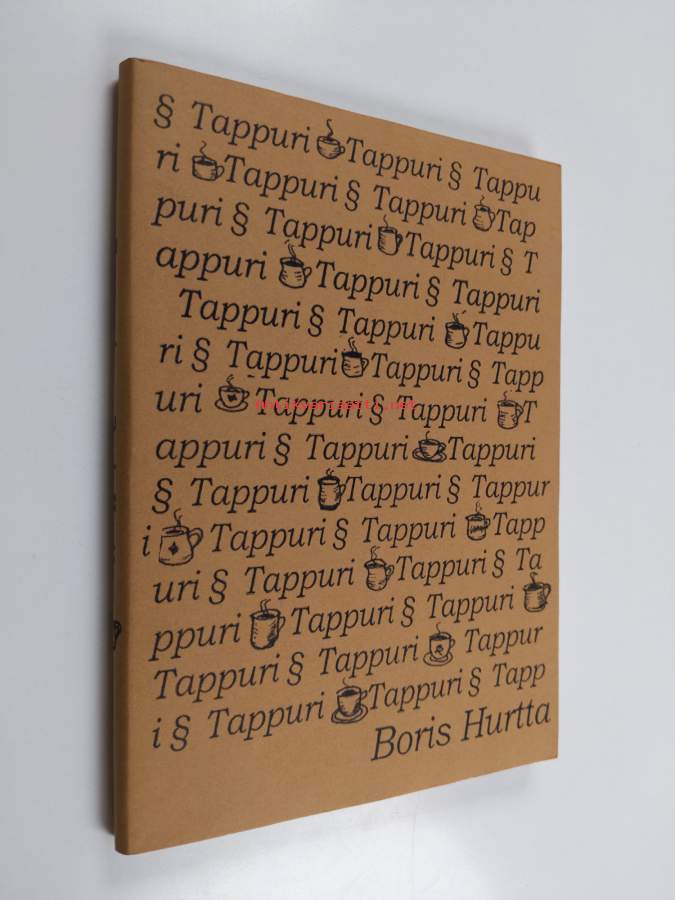 § Tappuri Tappuri § Tappu
ri Tappuri § Tappuri Tap
puri § Tappuri Tappuri § T
appuri Tappuri § Tappuri
Tappuri § Tappuri Tappu
ri § Tappuri Tappuri § Tapp
uri Tappuri § Tappuri T
appuri § Tappuri Tappuri
§ Tappuri Tappuri § Tappur
i Tappuri § Tappuri Tapp
uri § Tappuri Tappuri § Ta
ppuri Tappuri § Tappuri
Tappuri § Tappuri Tappur
i § Tappuri Tappuri § Tapp
Boris Hurtta